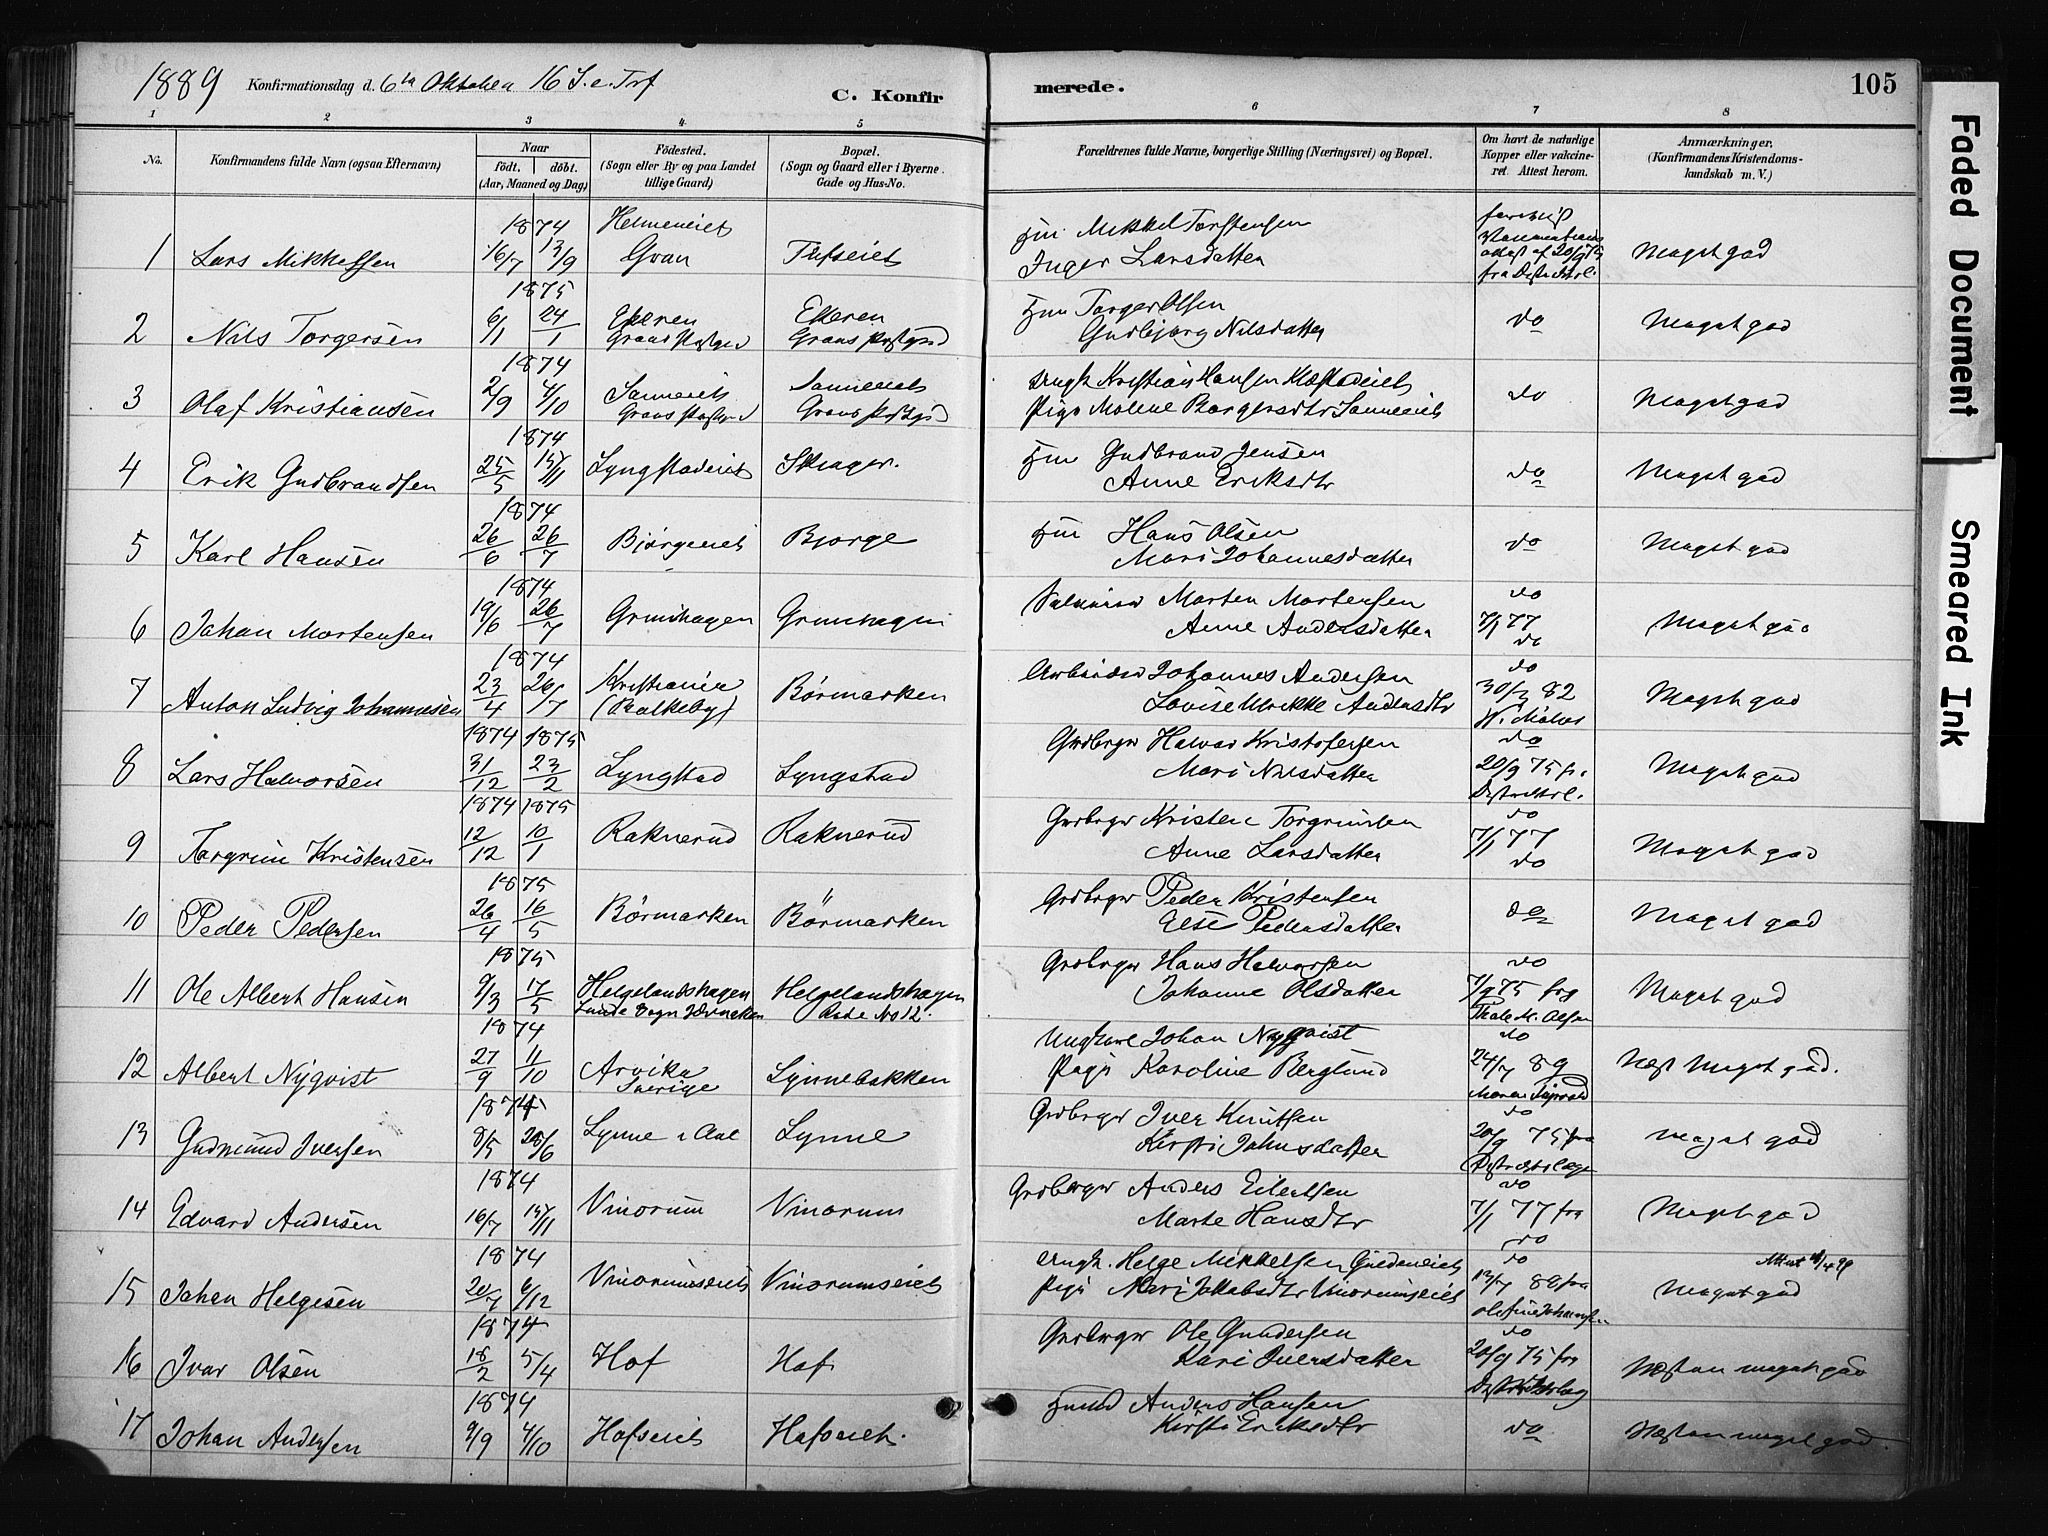 1889 Konfirmationsdag d. 6te Oktober 16 S. e. Tref
C. Konfir merede. 105
1 2 3 4 5 6 7 8
No. Konfirmandens fulde Navn (ogsaa Efternavn) Naar födt. döbt. (Aar, Maaned og Dag) Födested. (Sogn eller By og paa Landet tillige Gaard) Bopæl. (Sogn og Gaard eller i Byerne Gade og Hus-No.) Forældrenes fulde Navne, borgerlige Stilling (Næringsvei) og Bopæl. Om havt de naturlige Kopper eller vakcineret. Attest herom. Anmærkninger. (Konfirmandens Kristendomskundskab m. V.)
1874 Helmeneiet
1 Lars Mikkelsen 16/7 13/9 Gran Tufseiet
Mikkel Torstensen
Inger Larsdatter
attest af 20/9 75
fra Distriktsl.
Meget god
1875
2 Nils Torgersen 6/1 24/1 Ekeren Ekeren
Grans Prstgjd Grans Prstgjd
Torger Olsen
Gudbjørg Nilsdatter
do Meget god
1874
3 Olaf Kristiansen 2/9 4/10 Sanneeiet Sanneeiet
Grans Prstgjd Grans Prstgjd
Ungk Kristian Hansen
Pige Molene Borgersdtr Sanneeiet
do Meget god
1874
4 Erik Gudbrandsen 25/5 15/11 Lyngstadeiet
Gudbrand Jensen
Anne Eriksdtr
do Meget god
1874
5 Karl Hansen 26/6 26/7 Bjørgeeiet Bjørge
Hans Olsen
Mari Johannesdatter
do Meget god
1874
6 Johan Mortensen 19/6 26/7 Grinihagen Grinihagen
Morten Mortensen
Anne Andersdatter
do
7/1 77
do
Meget god
1874
7 Anton Ludvig Johannesen 23/4 26/7 Kristiania Børmarken
Arbeider Johannes Andersen
Lovise Ulrikke Andersdtr
do
30/3 82
Meget god
1874 1875
8 Lars Halvorsen 31/12 23/2 Lyngstad Lyngstad
Grdbrgr Halvor Kristofersen
Mari Nilsdatter
do
20/9 75 fr.
Distriktsl.
Meget god
1874 1875
9 Torgrim Kristensen 12/12 10/1 Raknerud Raknerud
Grdbrgr Kristen Torgrimsen
Anne Larsdatter
do
7/1 77
do
Meget god
1875
10 Peder Pedersen 26/4 16/5 Børmarken Børmarken
Grdbrgr Peder Kristensen
Else Pedersdatter
do Meget god
1875
11 Ole Albert Hansen 9/3 17/5 Helgelandshagen Helgelandshagen
Lunde Sogn Jævnaker Rode No 12.
Grdbrgr Hans Halvorsen
Johanne Olsdatter
do
7/9 75 fra
Thale M. Olsen
Meget god
1874
12 Albert Nyqvist 27/9 11/10 Arvika Lynnebakken
Sverige
Ungkarl Johan Nyqvist
Pige Karoline Berglund
do
24/7 89
Næst Meget god.
1874
13 Gudmund Iversen 8/5 28/6 Lynne i Aal Lynne
Grdbrgr Iver Knutsen
Kirsti Johnsdatter
do
20/9 75 fra
Distriktslæge
Meget god
1874
14 Edvard Andersen 16/7 15/11 Vinorum Vinorum
Grdbrgr Anders Eilertsen
Marte Hansdtr
do
7/1 77 fra
do
Meget god
1874
15 Johan Helgesen 20/7 6/12 Vinorumseiet Vinorumseiet
Ungk. Helge Mikkelsen
Pige Mari Jakobsdtr Vinorumseiet
do
13/7 89 fra
Olefine Johannesen
Meget god
1874
16 Ivar Olsen 18/2 5/4 Hof Hof
Grdbrgr Ole Gundersen
Kari Iversdatter
do
20/9 75 fra
Distriktslæg
Næsten meget god
1874
17 Johan Andersen 9/9 4/10 Hofseiet Hofseiet.
Anders Hansen
Kirsti Eriksdtr
do Næsten meget god.
Faded Document
Smeared Ink